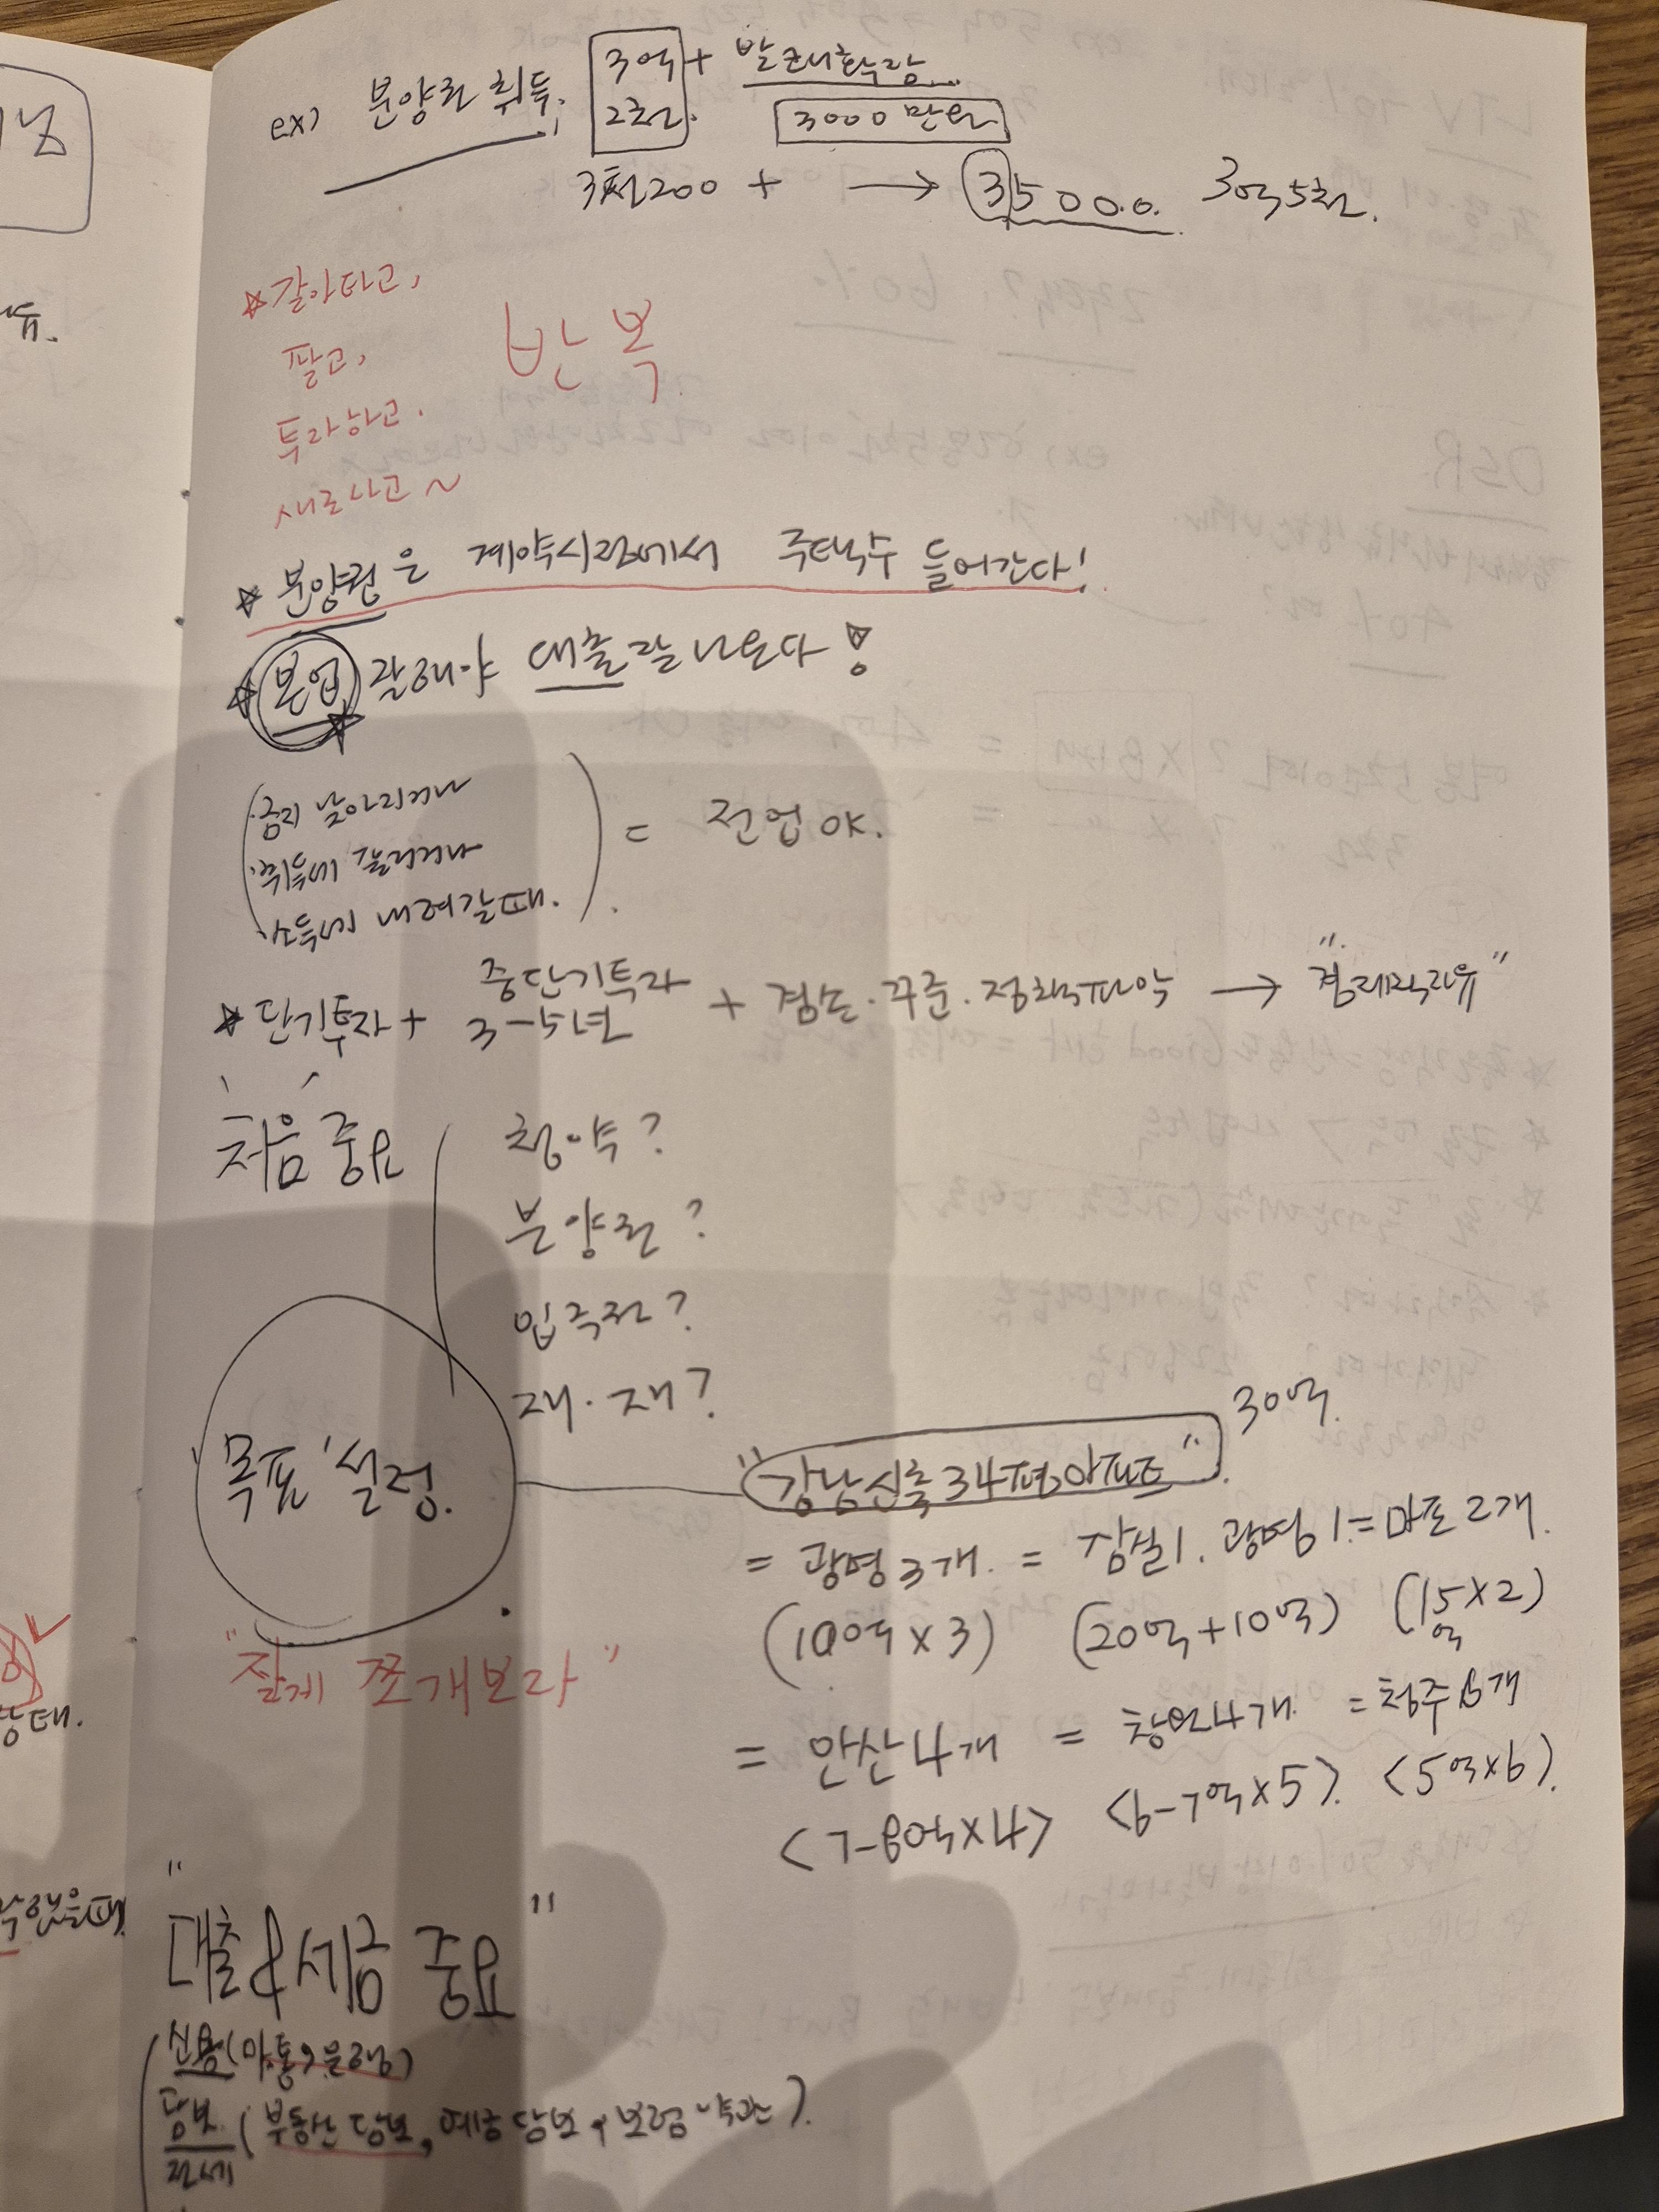 ex) 분양권 취득. 3억 + 발코니확장...
2천. 3000만원
3천200 + → 35000. 3억5천.
☆갈아타고,
팔고, 반복
투자하고.
새로사고~
☆ 분양권은 계약시점에서 주택수 들어간다!
☆ 본업 잘해야 대출 잘 나온다!
·금리 날아리거나
·취득세 풀리거나 = 전업 OK.
·소득세 내려갈때.
★ 단기투자 + 중단기투자 3-5년 + 겸손·꾸준·정책파악 → "경제적자유"
처음 중요
청약?
분양권?
입주전?
재·재?
목표 설정.
"강남신축34평아파트" 30억.
= 광명3개. = 잠실1. 광명1. = 마포2개.
(10억×3) (20억+10억) (15억×2)
"잘게 쪼개보라"
= 안산4개 = 창원4개 = 청주6개
<7-8억×4> <6-7억×5>. <5억×6>.
"대출&세금 중요"
신용(마통, 은행)
담보 (부동산담보, 예금담보, 보험약관).
전세
상태.
했을때.